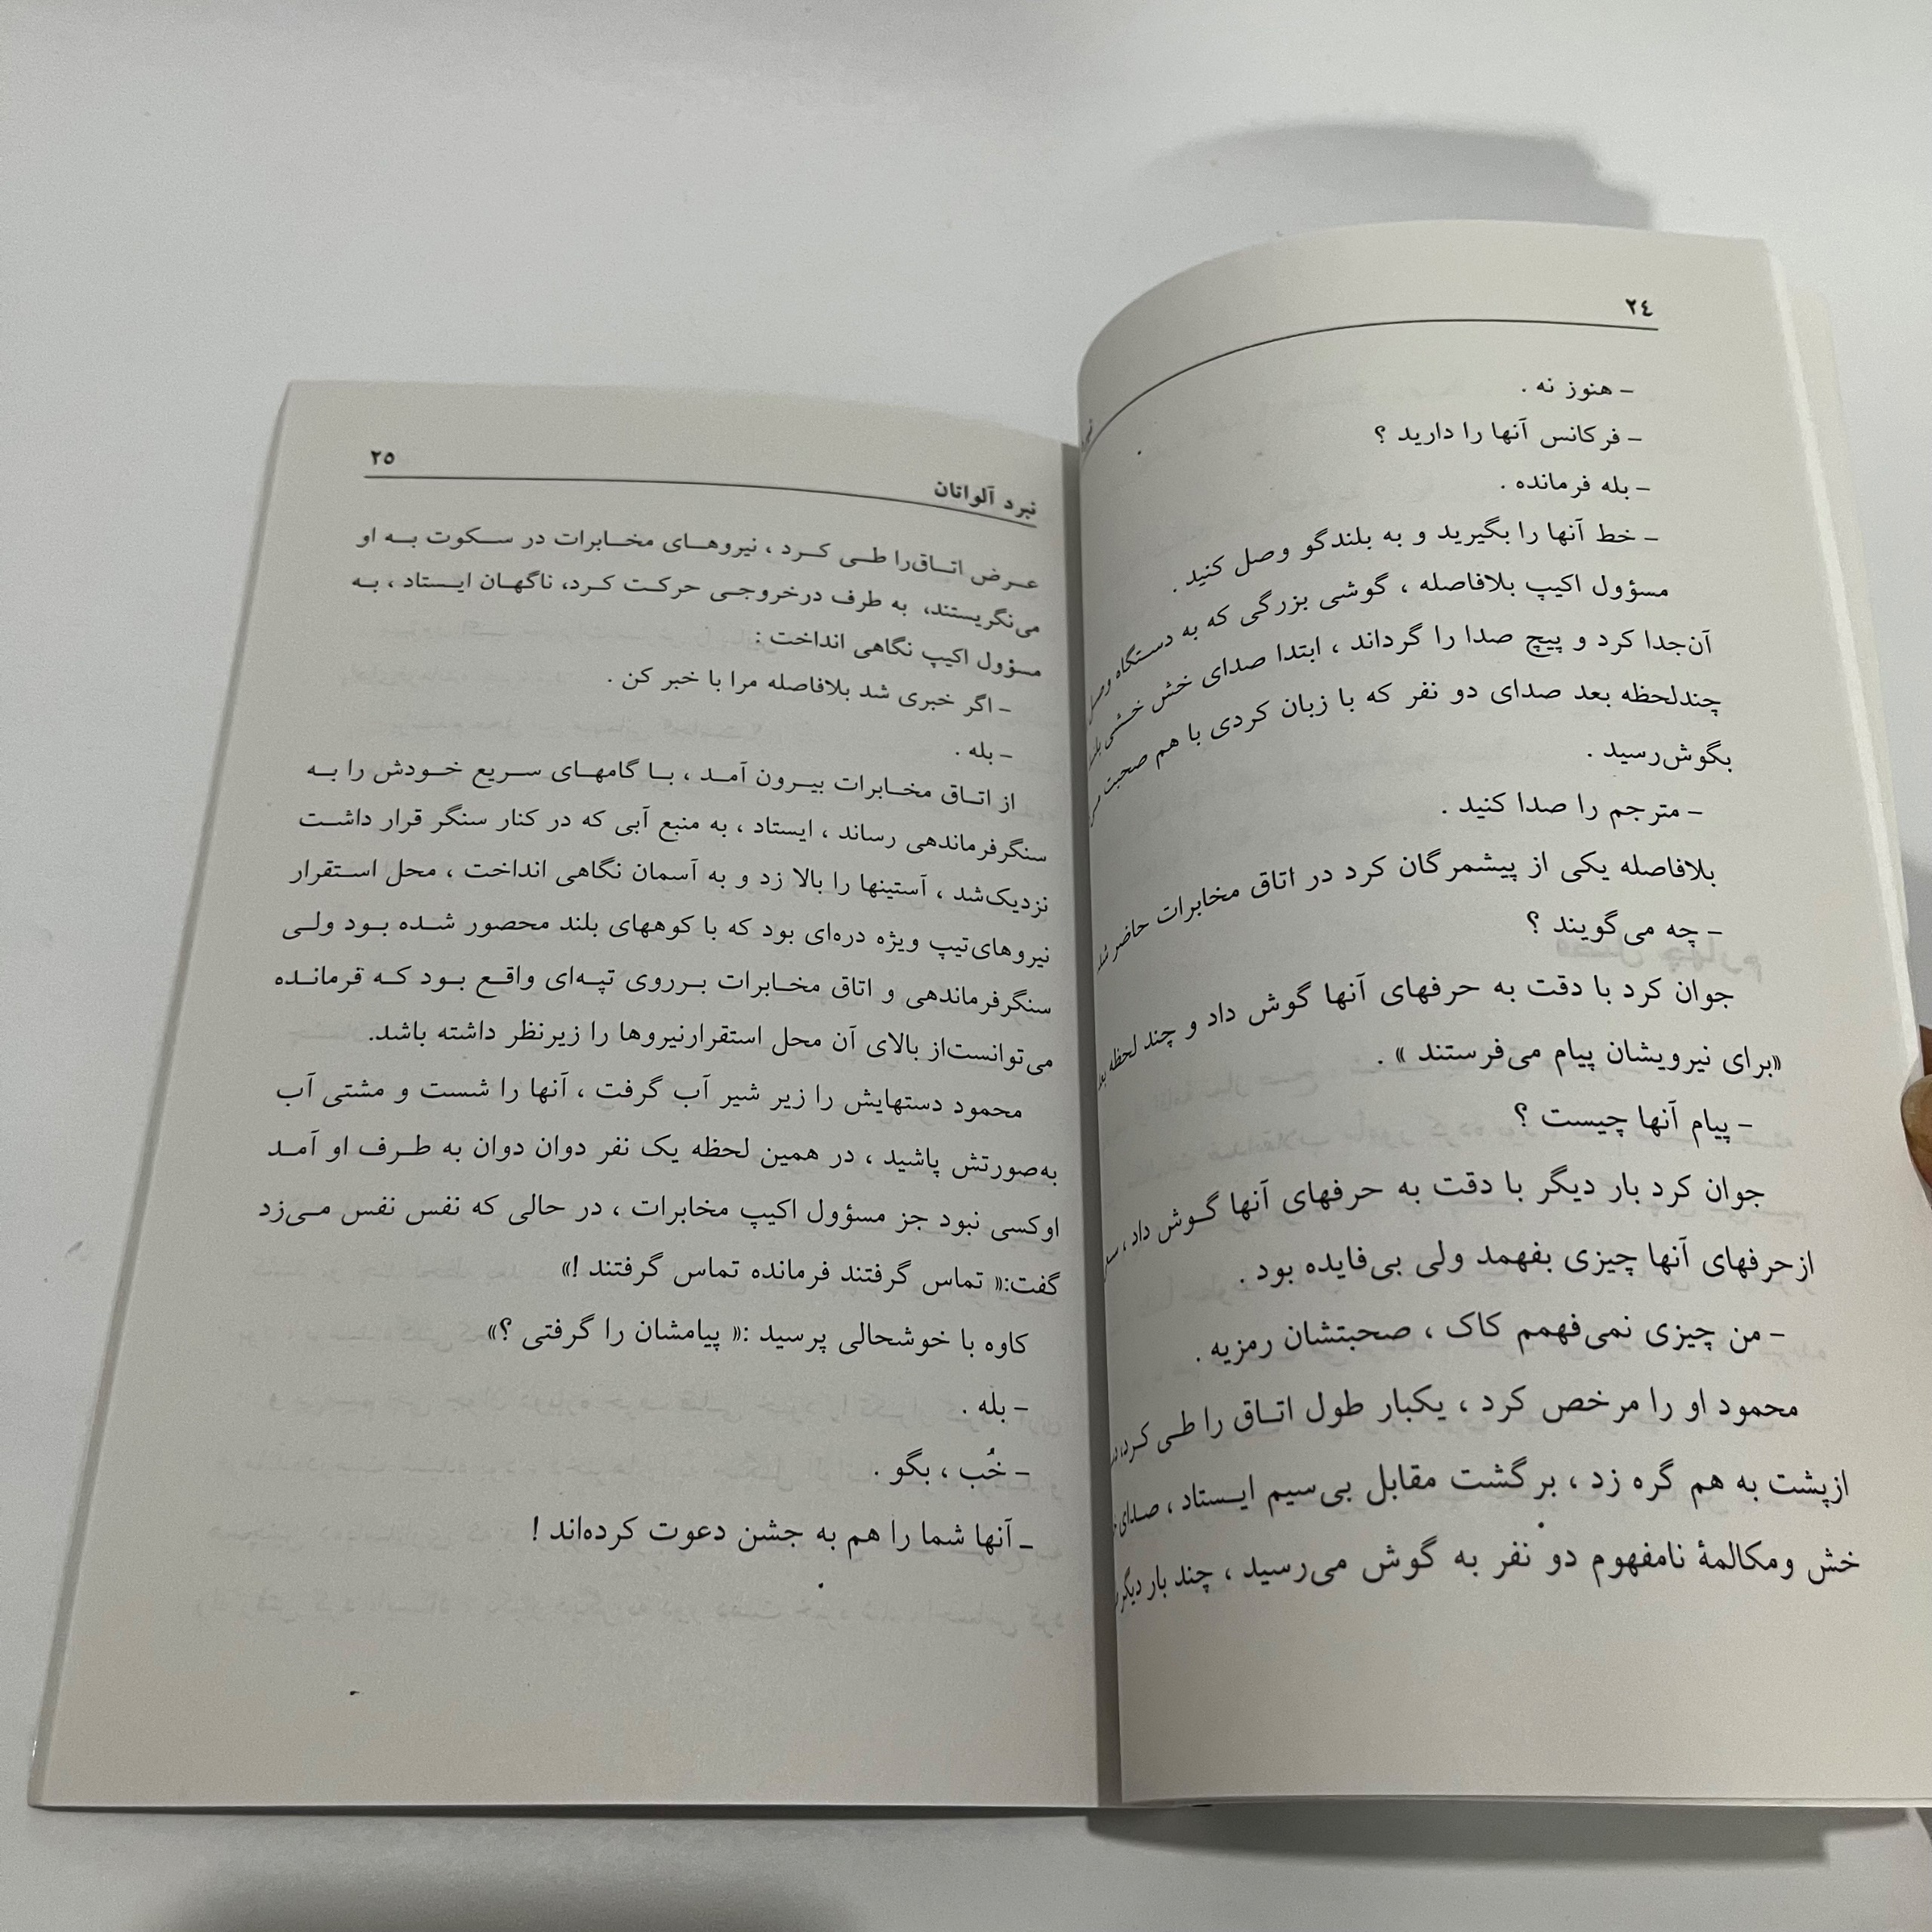 ٢٤
- هنوز نه .
- فرکانس آنها را دارید ؟
- بله فرمانده .
- خط آنها را بگیرید و به بلندگو وصل کنید .
مسؤول اکیپ بلافاصله ، گوشی بزرگی که به دستگاه وصل
آن‌جدا کرد و پیچ صدا را گرداند ، ابتدا صدای خش خشی
چندلحظه بعد صدای دو نفر که با زبان کردی با هم صحبت
بگوش‌رسید .
- مترجم را صدا کنید .
بلافاصله یکی از پیشمرگان کرد در اتاق مخابرات حاضر
- چه می‌گویند ؟
جوان کرد با دقت به حرفهای آنها گوش داد و چند لحظه
«برای نیرویشان پیام می‌فرستند » .
- پیام آنها چیست ؟
جوان کرد بار دیگر با دقت به حرفهای آنها گـوش داد ،
ازحرفهای آنها چیزی بفهمد ولی بی‌فایده بود .
- من چیزی نمی‌فهمم کاک ، صحبتشان رمزیه .
محمود او را مرخص کرد ، یکبار طول اتـاق را طـی کرد،
ازپشت به هم گره زد ، برگشت مقابل بی‌سیم ایـستاد ، صدای
خش ومکالمهٔ نامفهوم دو نفر به گوش می‌رسید ، چند بار دیگر
نبرد آلواتان
٢٥
عـرض اتـاق‌را طـی کـرد ، نیروهـای مخـابرات در سـکوت بـه او
می‌نگریستند، به طرف درخروجـی حرکـت کـرد، ناگهـان ایـستاد ، بـه
مـسؤول اکیپ نگاهی انداخت :
- اگر خبری شد بلافاصله مرا با خبر کن .
- بله .
از اتـاق مخـابرات بیـرون آمـد ، بـا گامهـای سـریع خـودش را بـه
سنگرفرماندهی رساند ، ایستاد ، به منبع آبی که در کنار سنگر قرار داشـت
نزدیک‌شد ، آستینها را بالا زد و به آسمان نگاهی انداخت ، محل اسـتقرار
نیروهای‌تیپ ویژه دره‌ای بود که با کوههای بلند محصور شـده بـود ولـی
سنگرفرماندهی و اتاق مخـابرات بـرروی تپـه‌ای واقـع بـود کـه فرمانـده
می‌توانست‌از بالای آن محل استقرارنیروها را زیرنظر داشته باشد.
محمود دستهایش را زیر شیر آب گرفت ، آنها را شست و مشتی آب
به‌صورتش پاشید ، در همین لحظه یک نفر دوان دوان به طـرف او آمـد
اوکسی نبود جز مسؤول اکیپ مخابرات ، در حالی که نفس نفس مـی‌زد
گفت:« تماس گرفتند فرمانده تماس گرفتند !»
کاوه با خوشحالی پرسید :« پیامشان را گرفتی ؟»
- بله .
- خُب ، بگو .
- آنها شما را هم به جشن دعوت کرده‌اند !